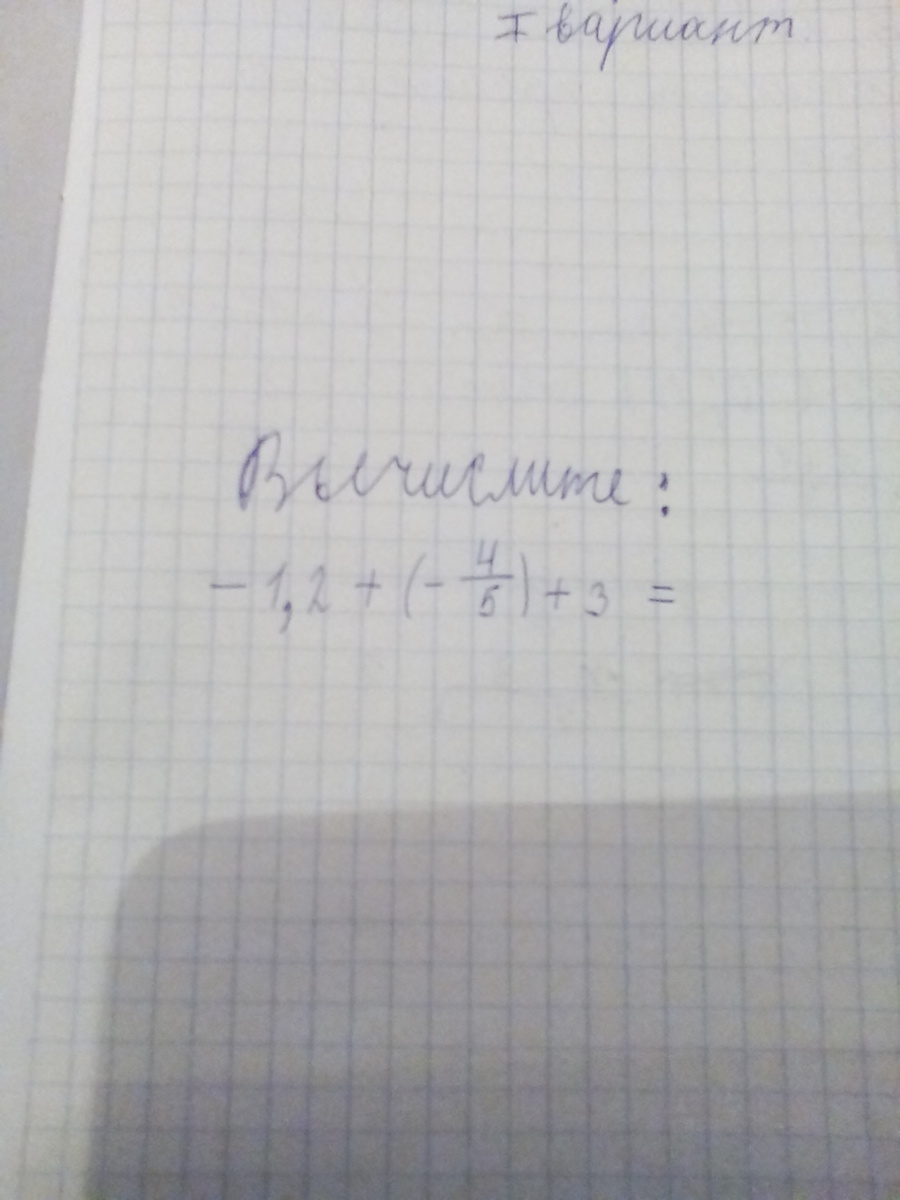 I вариант
Вычислите:
- 1,2 + (- 4/5) + 3 =